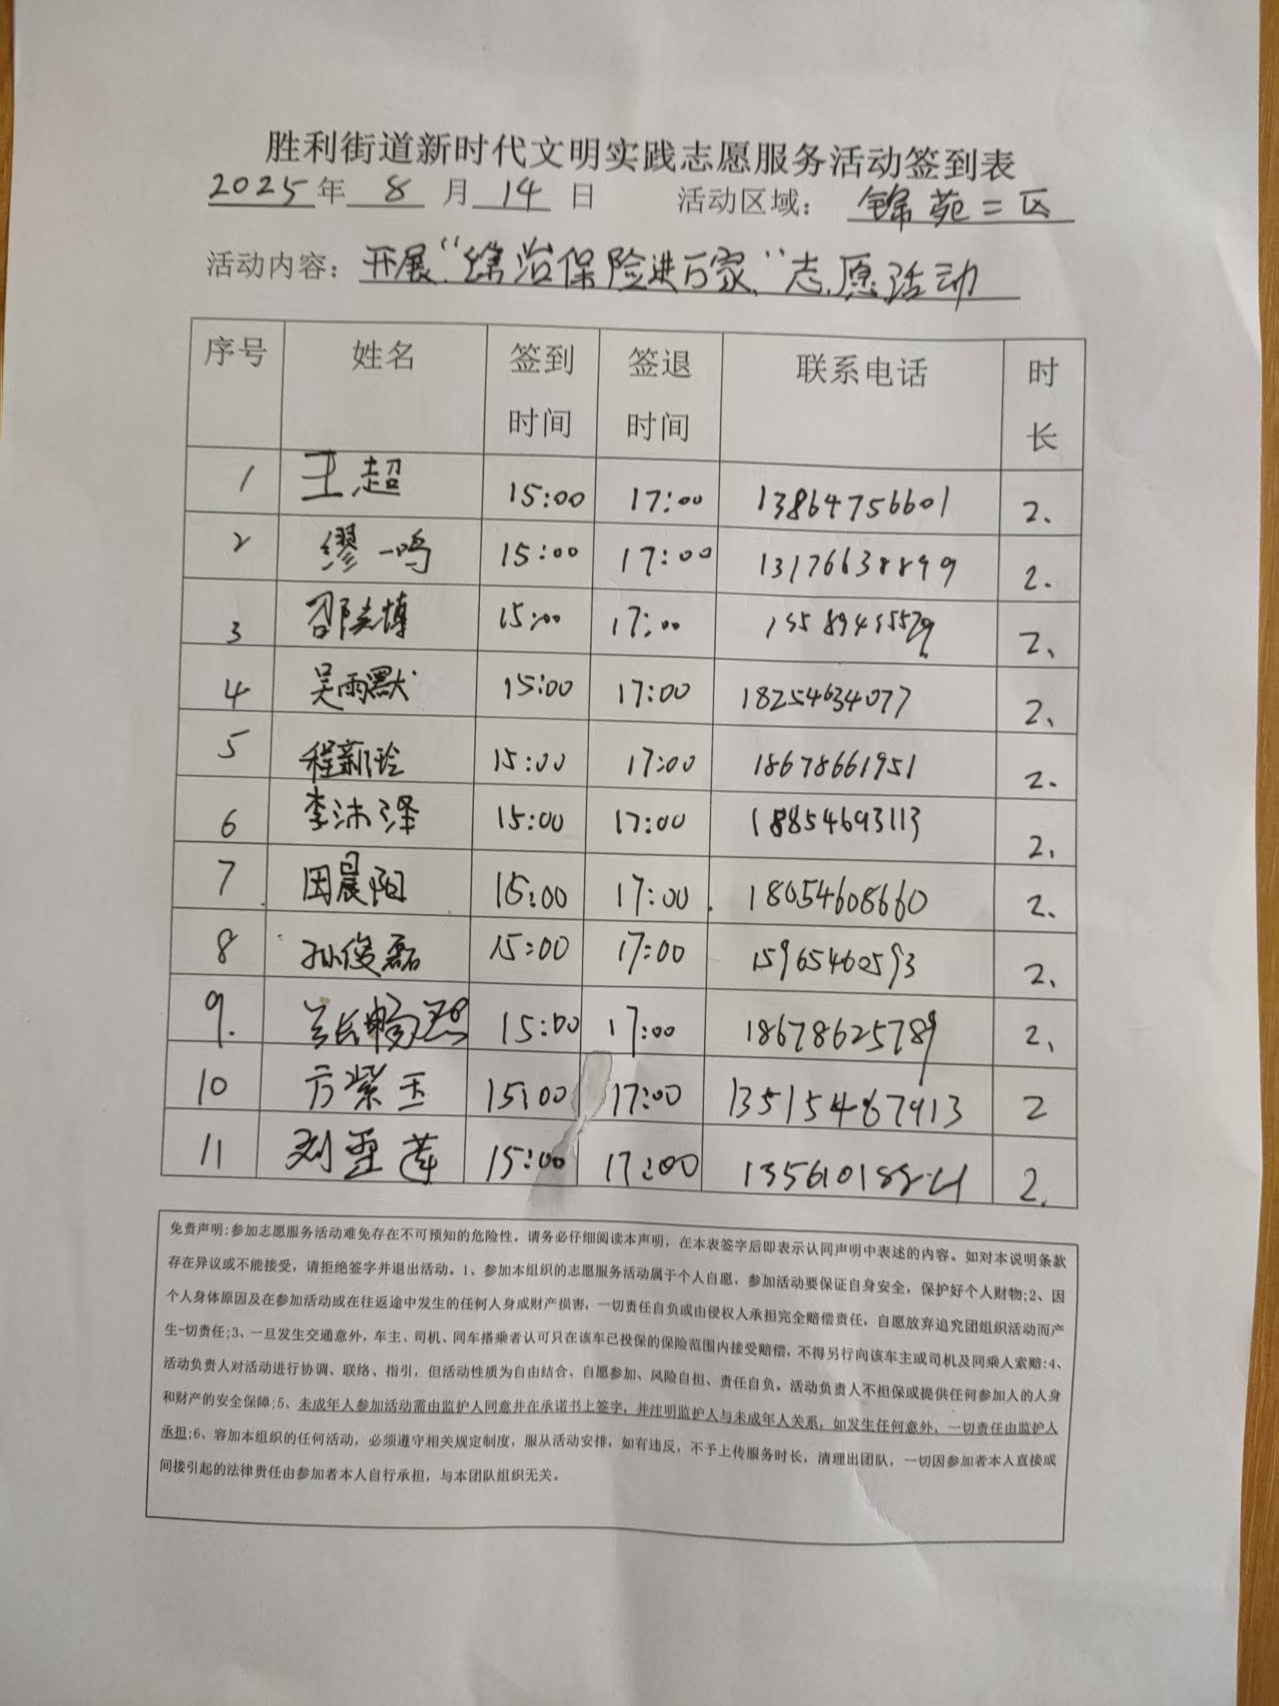 胜利街道新时代文明实践志愿服务活动签到表
2025年 8 月 14 日 活动区域: 锦苑二区
活动内容: 开展“综治保险进万家”志愿活动
序号 姓名 签到时间 签退时间 联系电话 时长
1 王超 15:00 17:00 13864756601 2.
2 缪一鸣 15:00 17:00 13176638899 2.
3 15:00 17:00 2、
4 吴雨默 15:00 17:00 18254634077 2、
5 程新玲 15:00 17:00 18678661951 2.
6 李沛泽 15:00 17:00 18854693113 2,
7 田晨阳 15:00 17:00 18054608660 2.
8 孙俊磊 15:00 17:00 15965460593 2、
9. 15:00 17:00 18678625789 2、
10 方紫玉 15:00 17:00 13515467913 2
11 15:00 17:00 2.
免责声明:参加志愿服务活动难免存在不可预知的危险性。请务必仔细阅读本声明，在本表签字后即表示认同声明中表述的内容。如对本说明条款
存在异议或不能接受，请拒绝签字并退出活动。1、参加本组织的志愿服务活动属于个人自愿，参加活动要保证自身安全，保护好个人财物;2、因
个人身体原因及在参加活动或在往返途中发生的任何人身或财产损害，一切责任自负或由侵权人承担完全赔偿责任，自愿放弃追究团组织活动而产
生-切责任;3、一旦发生交通意外，车主、司机、同车搭乘者认可只在该车已投保的保险范围内接受赔偿，不得另行向该车主或司机及同乘人索赔:4、
活动负责人对活动进行协调、联络、指引，但活动性质为自由结合、自愿参加、风险自担、责任自负。活动负责人不担保或提供任何参加人的人身
和财产的安全保障;5、未成年人参加活动需由监护人同意并在承诺书上签字，并注明监护人与未成年人关系，如发生任何意外，一切责任由监护人
承担;6、容加本组织的任何活动，必须遵守相关规定制度，服从活动安排，如有违反，不予上传服务时长，清理出团队，一切因参加者本人直接或
间接引起的法律责任由参加者本人自行承担，与本团队组织无关。